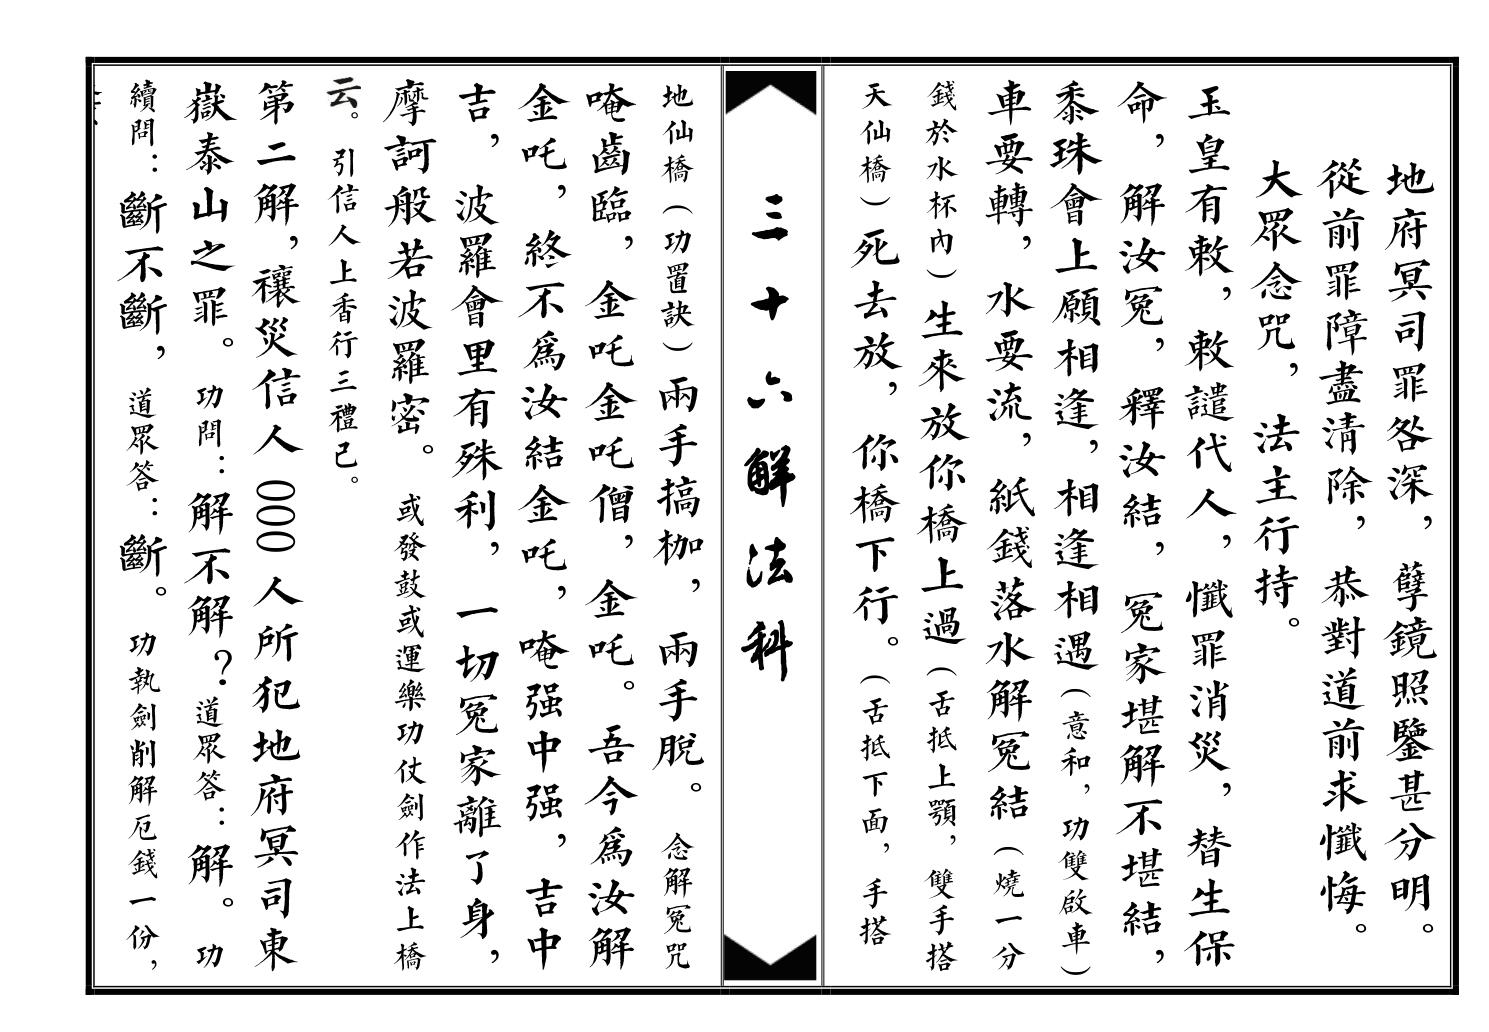 地府冥司罪咎深，孽鏡照鑒甚分明。
從前罪障盡清除，恭對道前求懺悔。
大眾念咒，法主行持。
玉皇有敕，敕譴代人，懺罪消災，替生保
命，解汝冤，釋汝結，冤家堪解不堪結，
黍珠會上願相逢，相逢相遇（意和，功雙啟車）
車要轉，水要流，紙錢落水解冤結（燒一分
錢於水杯內）生來放你橋上過（舌抵上顎，雙手搭
天仙橋）死去放，你橋下行。（舌抵下面，手搭
三十六解法科
地仙橋（功置訣）兩手搞枷，兩手脫。念解冤咒
唵齒臨，金吒金吒僧，金吒。吾今為汝解
金吒，終不為汝結金吒，唵强中强，吉中
吉，波羅會里有殊利，一切冤家離了身，
摩訶般若波羅密。或發鼓或運樂功仗劍作法上橋
云。引信人上香行三禮已。
第二解，禳災信人000人所犯地府冥司東
嶽泰山之罪。功問：解不解？道眾答：解。功
續問：斷不斷，道眾答：斷。功執劍削解厄錢一份，